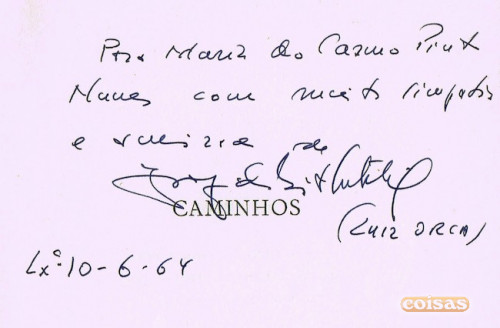 Para Maria do Carmo Pinto
Nunes com muita simpatia
e amizade de
CAMINHOS
(Luiz ORCA)
Lxª 10-6-64
coisas